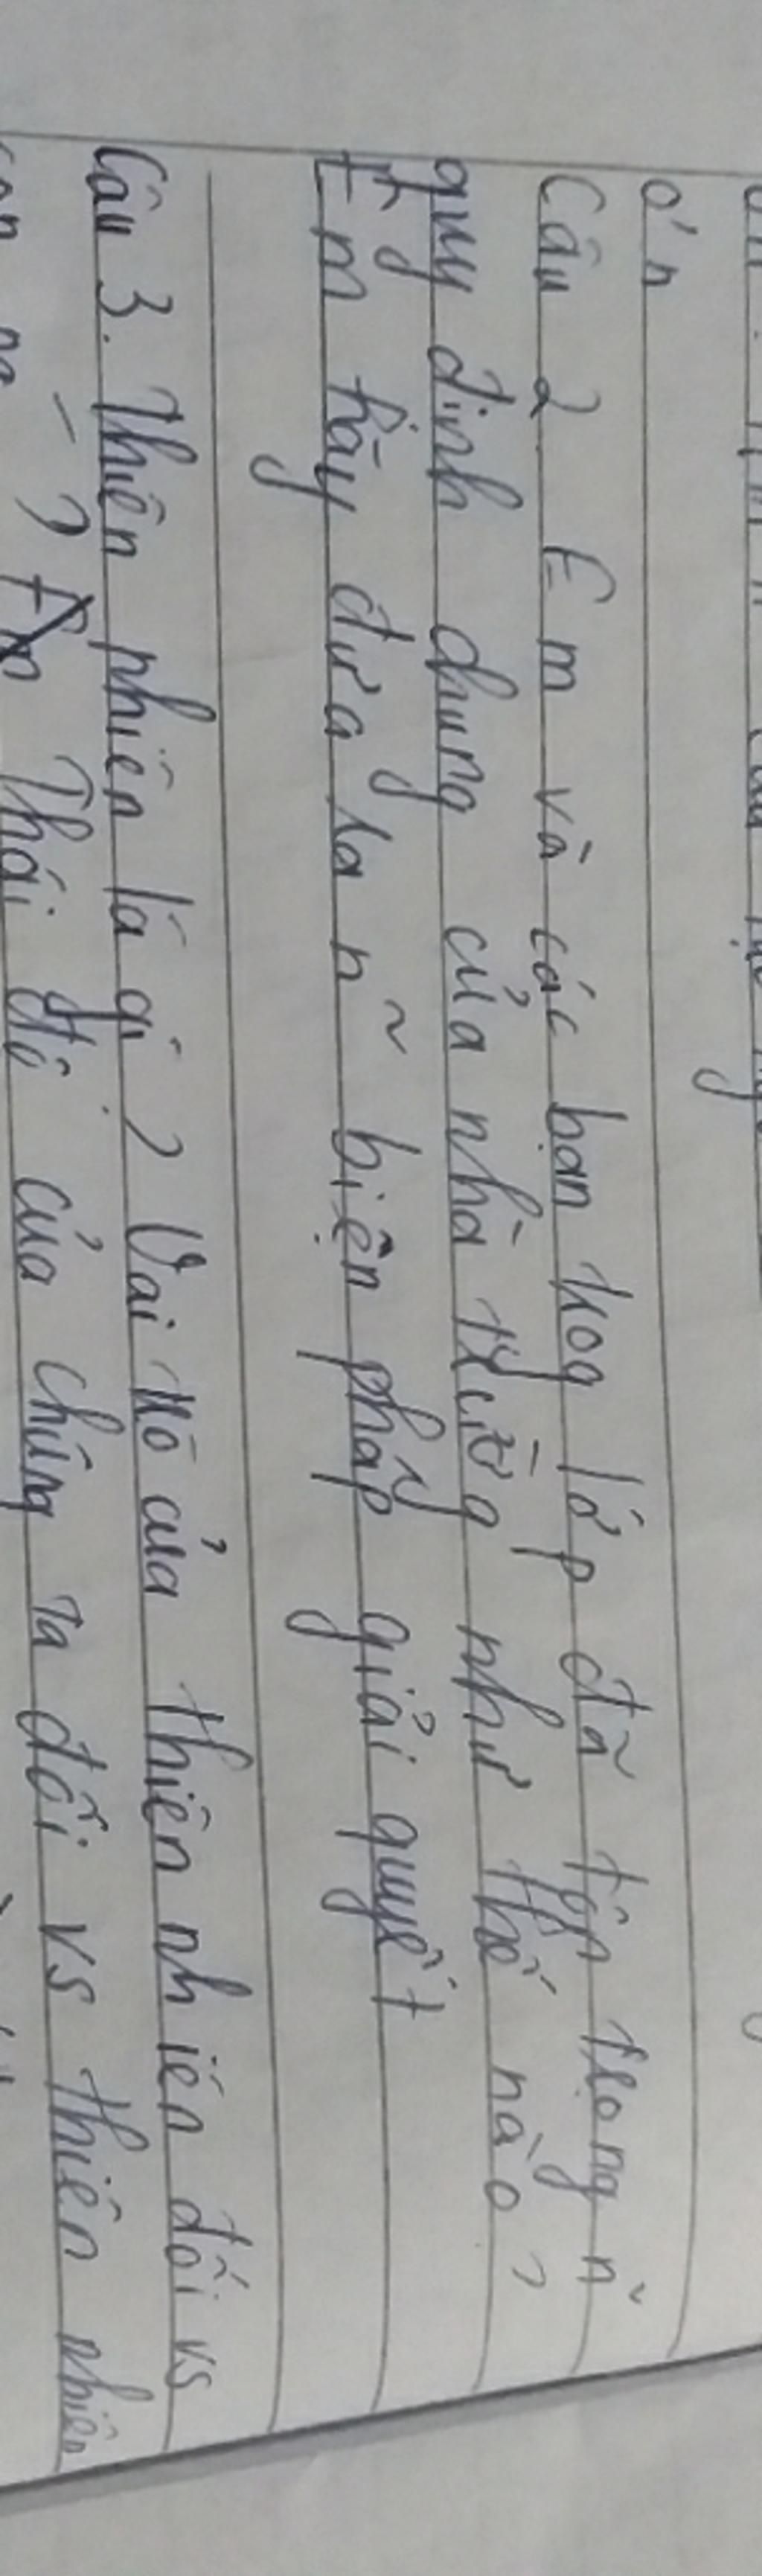 ơ'n
Câu 2 Em và các bạn trog lớp đã tôn trọng n~
quy định chung của nhà trường như thế nào?
Em hãy đưa ra n~ biện pháp giải quyết
Câu 3. Thiên nhiên là gì? Vai trò của thiên nhiên đối vs
Thái độ của chúng ta đối vs thiên nhiên